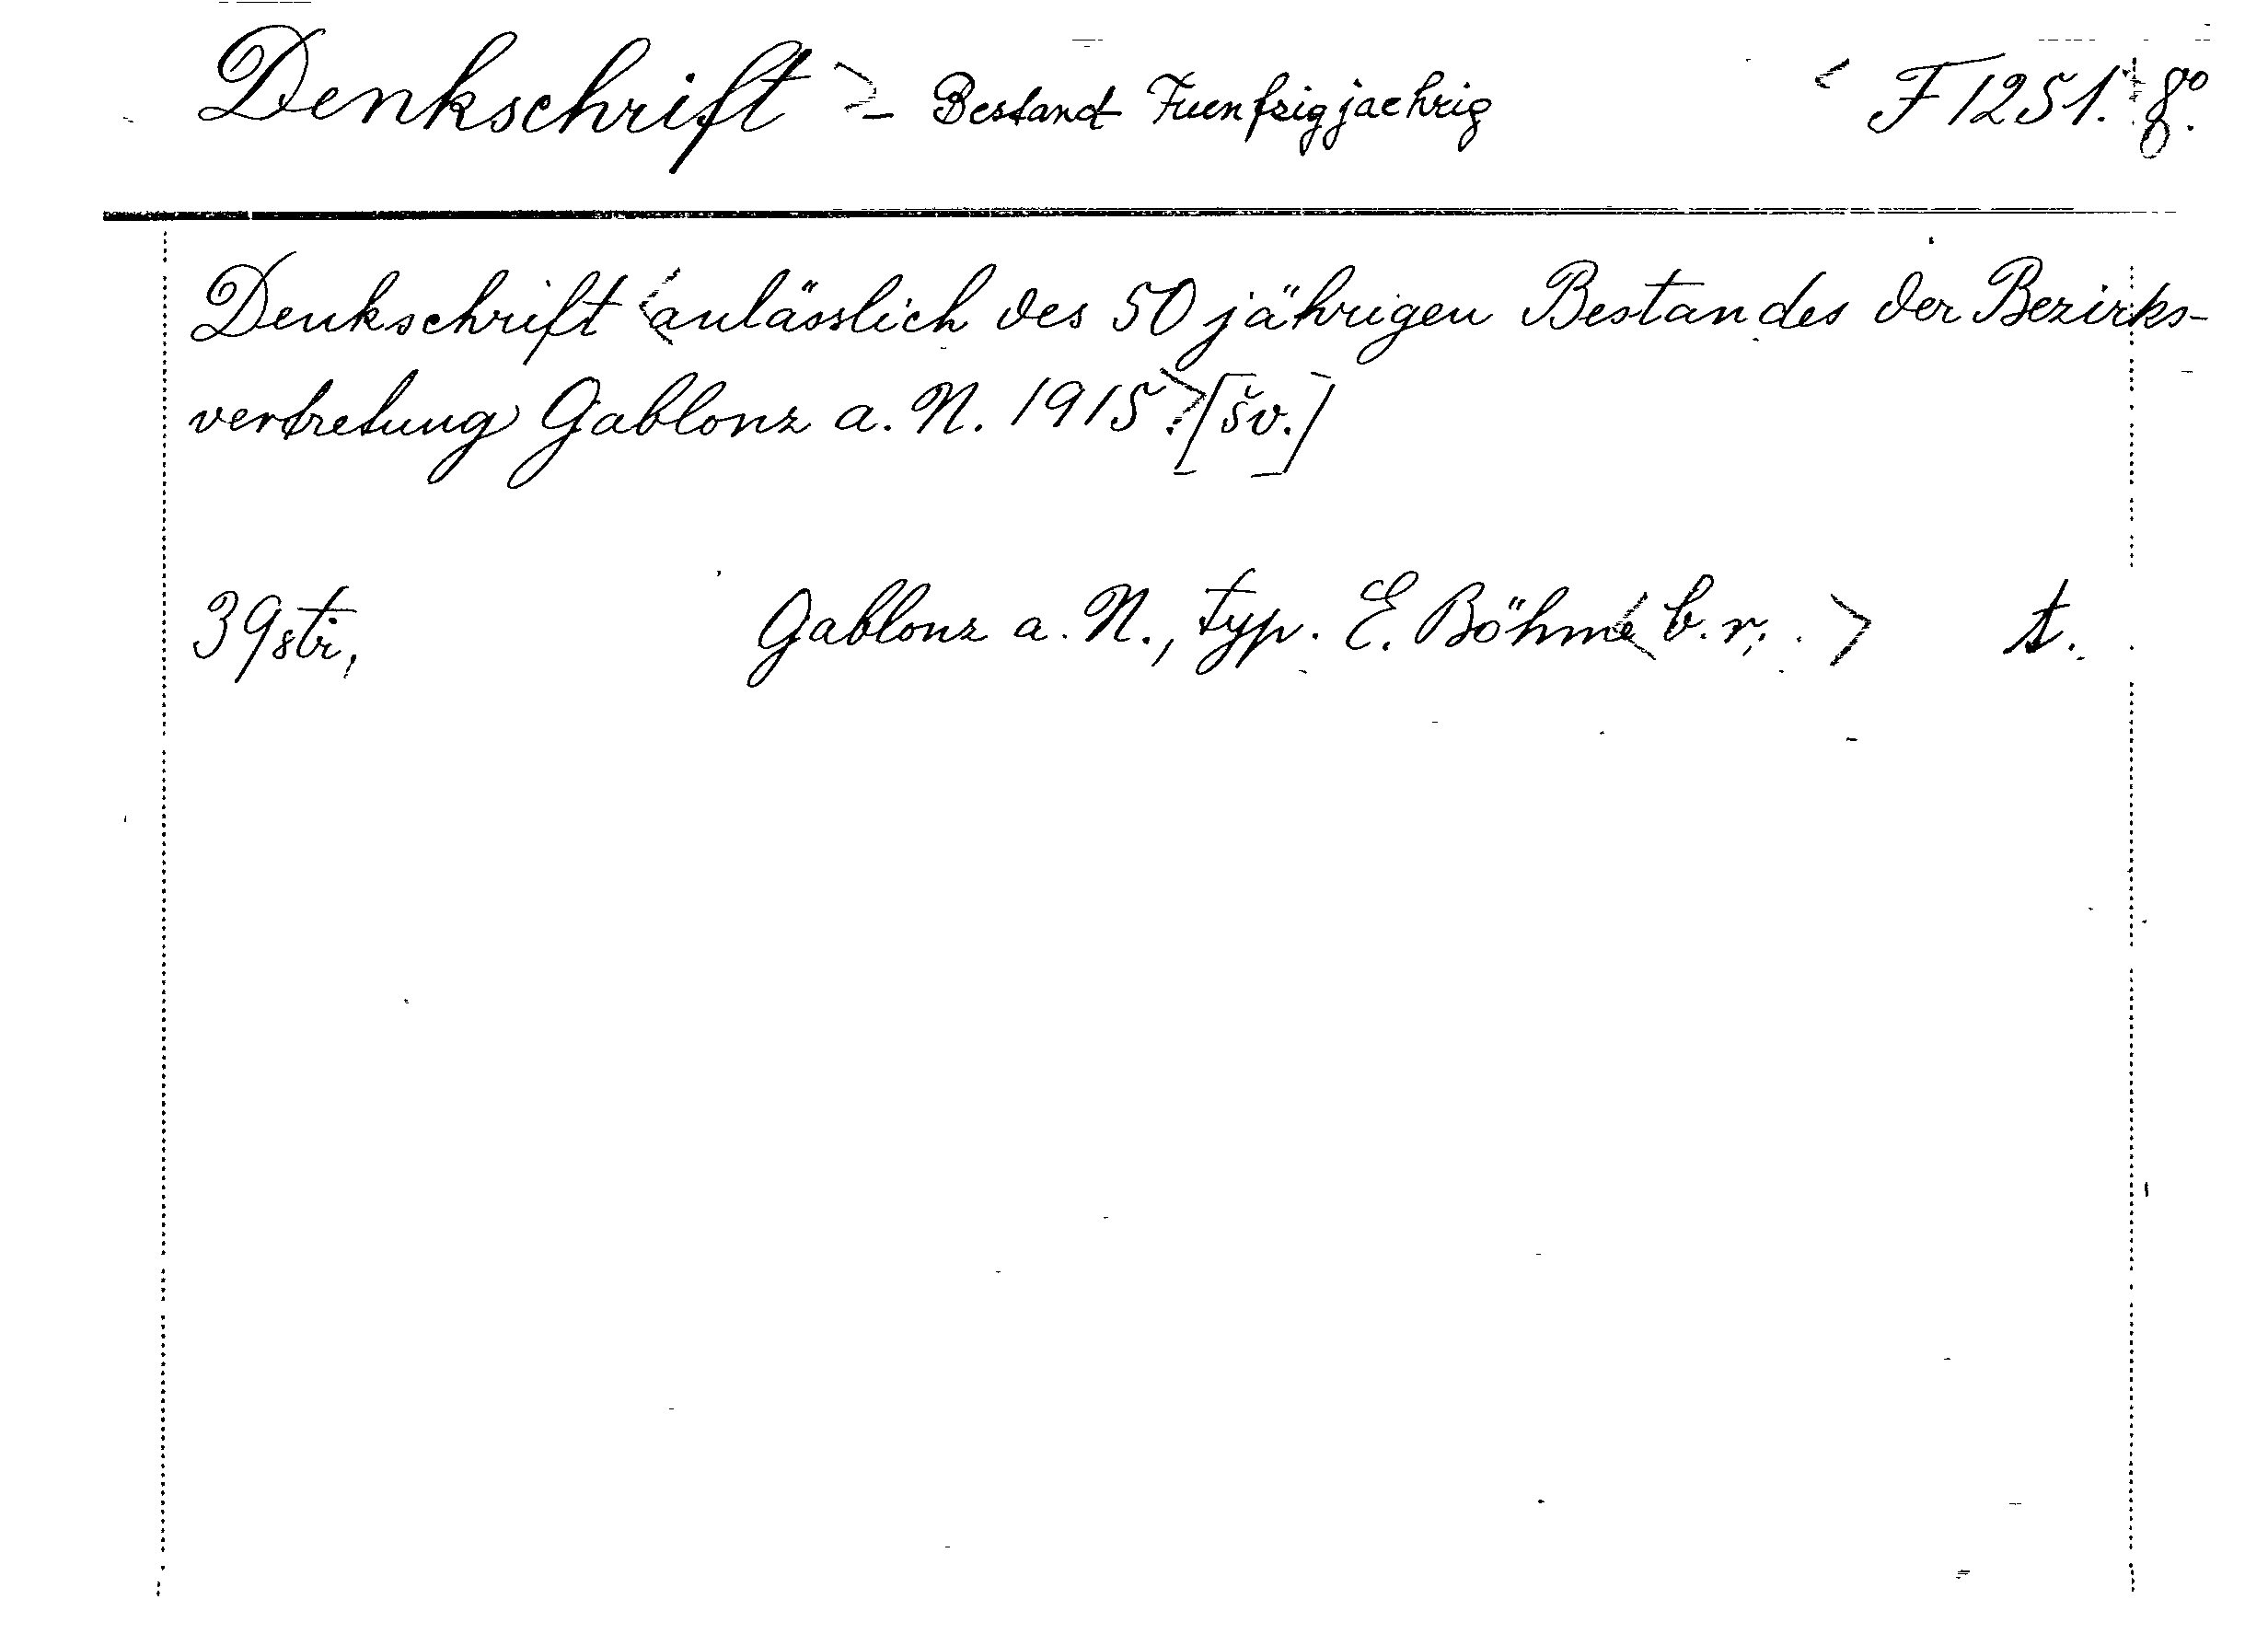 Denkschrift > - Bestand Fuenfzigjaehrig < F 1251. 8°.
Denkschrift <anlässlich des 50 jährigen Bestandes der Bezirks-
vertretung Gablonz a. N. 1915.> [šv.]
39 str, Gablonz a. N., typ. E. Böhme <b. r. .> t.